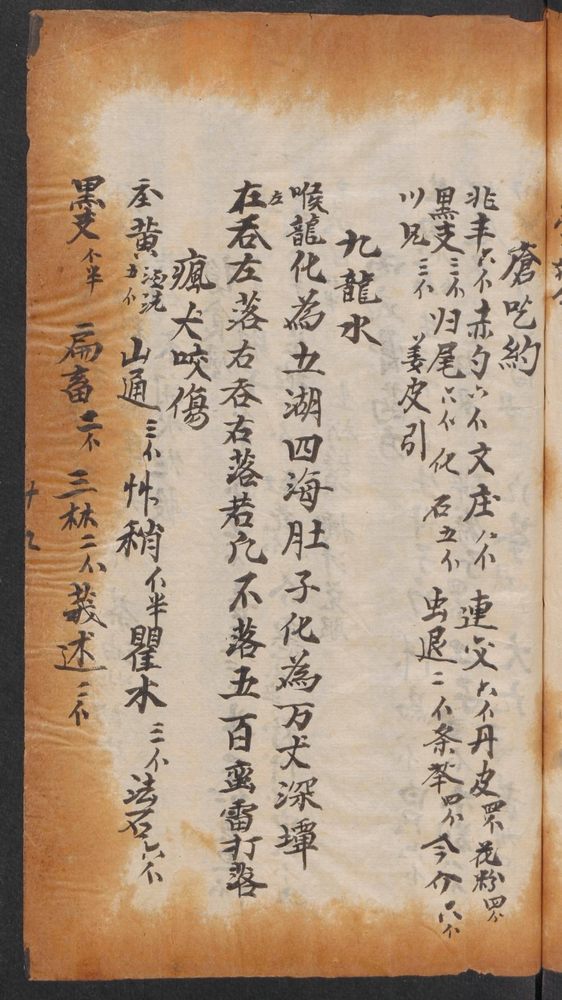 瘡吃約
非丰六个 赤勺六个 文庄八个 連交六个 丹皮四个 花粉四个
黑支三个 归尾六个 化石五个 虫退二个 条苓四个 今分六个
川見三个 姜皮引
九龍水
喉龍化為五湖四海肚子化為万丈深墰
在左吞左落右吞右落若凢不落五百蛮雷打落
瘋犬咬傷
至黄五个酒洗 山通三个 艸稍个半 瞿木三个 法石六个
黑支个半 二扁畜二个 三林二个 莪述二个